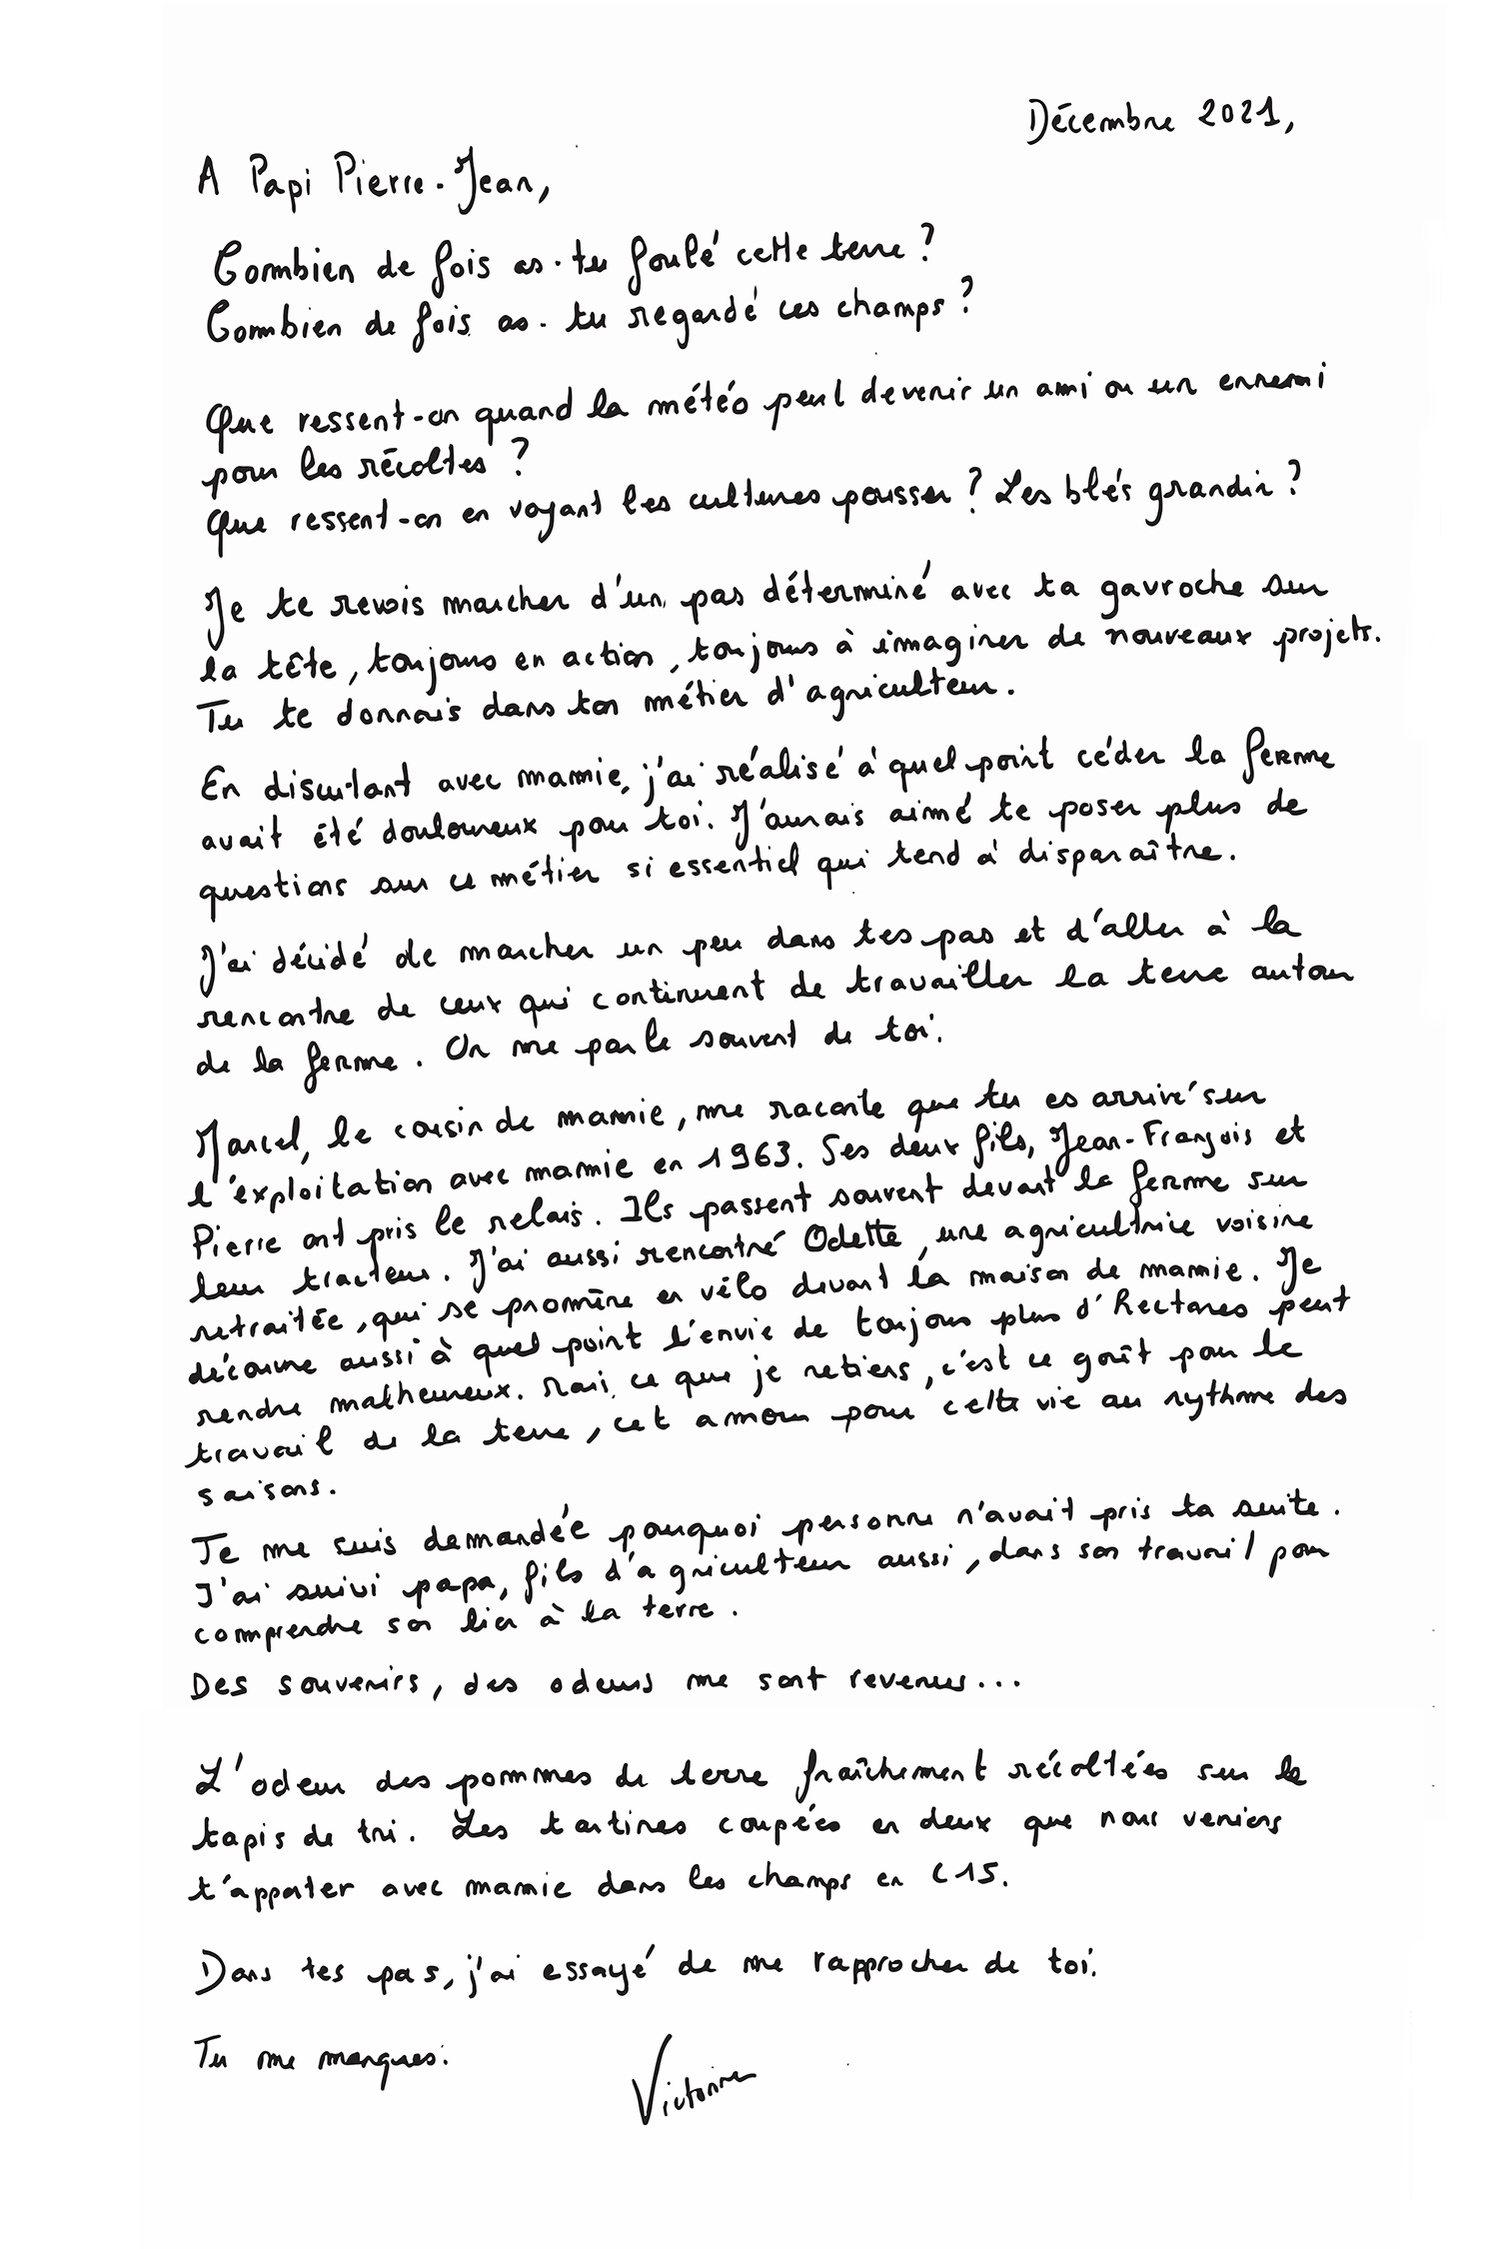 Décembre 2021,
A Papi Pierre-Jean,
Combien de fois as-tu foulé cette terre ?
Combien de fois as-tu regardé ces champs ?
Que ressent-on quand la météo peut devenir un ami ou un ennemi
pour les récoltes ?
Que ressent-on en voyant les cultures pousser ? Les blés grandir ?
Je te revois marcher d'un pas déterminé avec ta gavroche sur
la tête, toujours en action, toujours à imaginer de nouveaux projets.
Tu te donnais dans ton métier d'agriculteur.
En discutant avec mamie, j'ai réalisé à quel point céder la ferme
avait été douloureux pour toi. J'aurais aimé te poser plus de
questions sur ce métier si essentiel qui tend à disparaître.
J'ai décidé de marcher un peu dans tes pas et d'aller à la
rencontre de ceux qui continuent de travailler la terre autour
de la ferme. On me parle souvent de toi.
Marcel, le cousin de mamie, me raconte que tu es arrivé sur
l'exploitation avec mamie en 1963. Ses deux fils, Jean-François et
Pierre ont pris le relais. Ils passent souvent devant la ferme sur
leur tracteur. J'ai aussi rencontré Odette, une agricultrice voisine
retraitée, qui se promène en vélo devant la maison de mamie. Je
découvre aussi à quel point l'envie de toujours plus d'hectares peut
rendre malheureux. Mais ce que je retiens, c'est ce goût pour le
travail de la terre, cet amour pour cette vie au rythme des
saisons.
Je me suis demandée pourquoi personne n'avait pris ta suite.
J'ai suivi papa, fils d'agriculteur aussi, dans son travail pour
comprendre son lien à la terre.
Des souvenirs, des odeurs me sont revenues...
L'odeur des pommes de terre fraîchement récoltées sur le
tapis de tri. Les tartines coupées en deux que nous venions
t'apporter avec mamie dans les champs en C15.
Dans tes pas, j'ai essayé de me rapprocher de toi.
Tu me manques.
Victorine